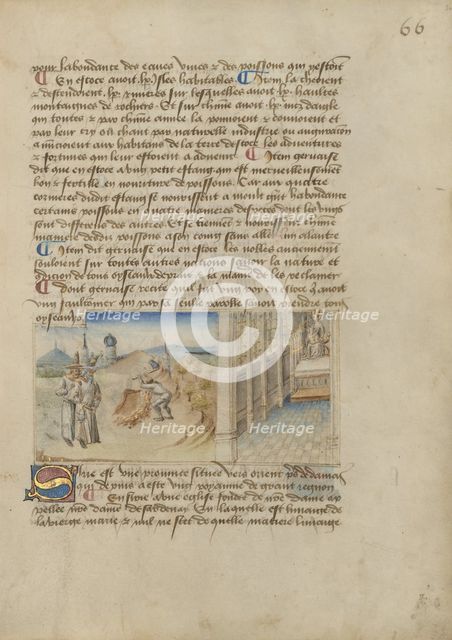 66
pour labondance des eaues vives & des poissons qui y estoient
En escoce avoit .lx. isles habitables. Item la cheoient
& descendoient .lx. rivieres sur lesquelles avoit .lx. haultes
montaignes de rochers. Et sur chascune avoit .lx. nidz daigle
qui toutes & par chascune annee la ponnoient & couvoient et
par leur cry ou chant par naturelle industrie ou
annoncoient aux habitans de la terre descoce les adventures
& fortunes qui leur estoient a advenir. Item gervaise
dit que en escoce a ung petit estang qui est merveilleusement
bon & fertille en nourriture de poissons. Car aux quatre
cornieres dudit estang se nourrissent a moult grant habondance
certains poissons en quatre manieres despeces dont les ungs
sont differens des autres. Et se tiennent & nourrissent chascune
maniere desdis poissons a son coing sans aller en un aultre
Item dit gervaise qui en escoce les nobles
sur toutes autres nations savoir la nature et
de tous oyseaulx de proie & la maniere de les reclamer
dont gervaise recite quil fut ung roy en escoce q̃ avoit
ung faulconnier qui par sa seulle parolle savoit prendre tous
oyseaulx.
Heritage Heritage
C
Heritage Heritage
Surie est une province situee vers orient
qui depuis a este ung royaume de grant region
En surie a une eglise fondee de nr̃e dame ap
pellee nr̃e dame de sardenay. En laquelle est limaige de
la vierge marie & nul ne scet de quelle matiere limaige